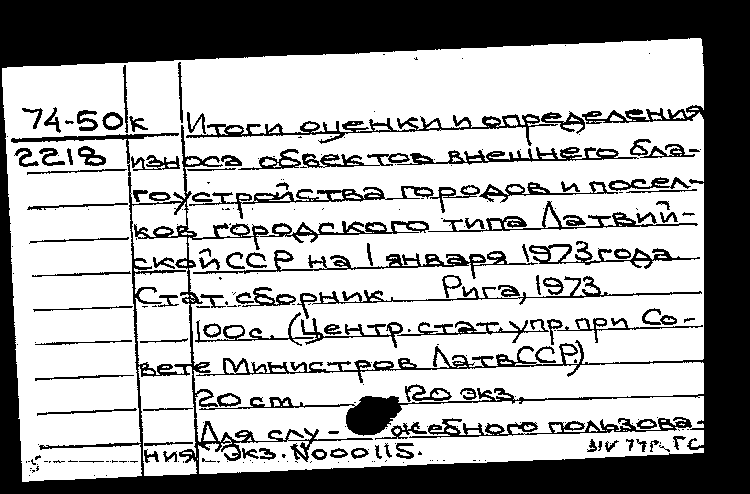 74-50 к Итоги оценки и определения
2218 износа объектов внешнего бла-
гоустройства городов и посел-
ков городского типа Латвий-
ской ССР на 1 января 1973 года.
Стат. сборник. Рига, 1973.
100 с. (Центр. стат. упр. при Со-
вете Министров ЛатвССР)
20 cm. 120 экз.
Для слу- жебного пользова-
ния. Экз. N000115.